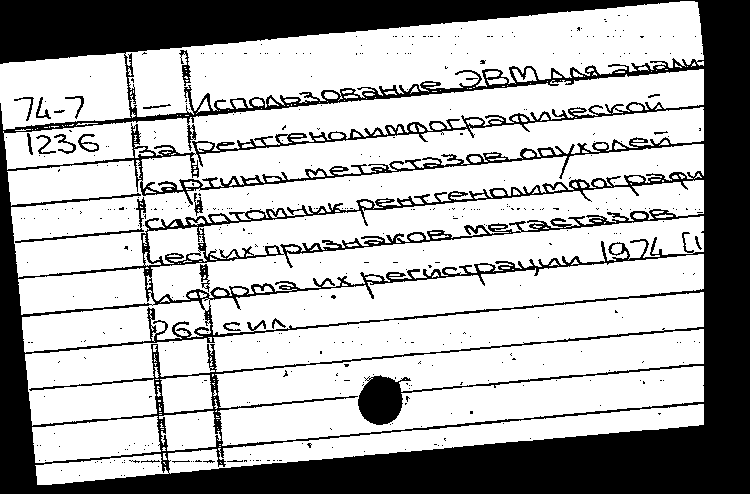 74-7 — Использование ЭВМ для анали-
1236 за рентгенолимфографической
картины метастазов опухолей
симптомник рентгенолимфографи
ческих признаков метастазов
и форма их регистрации 1974 [1
26с. с ил.